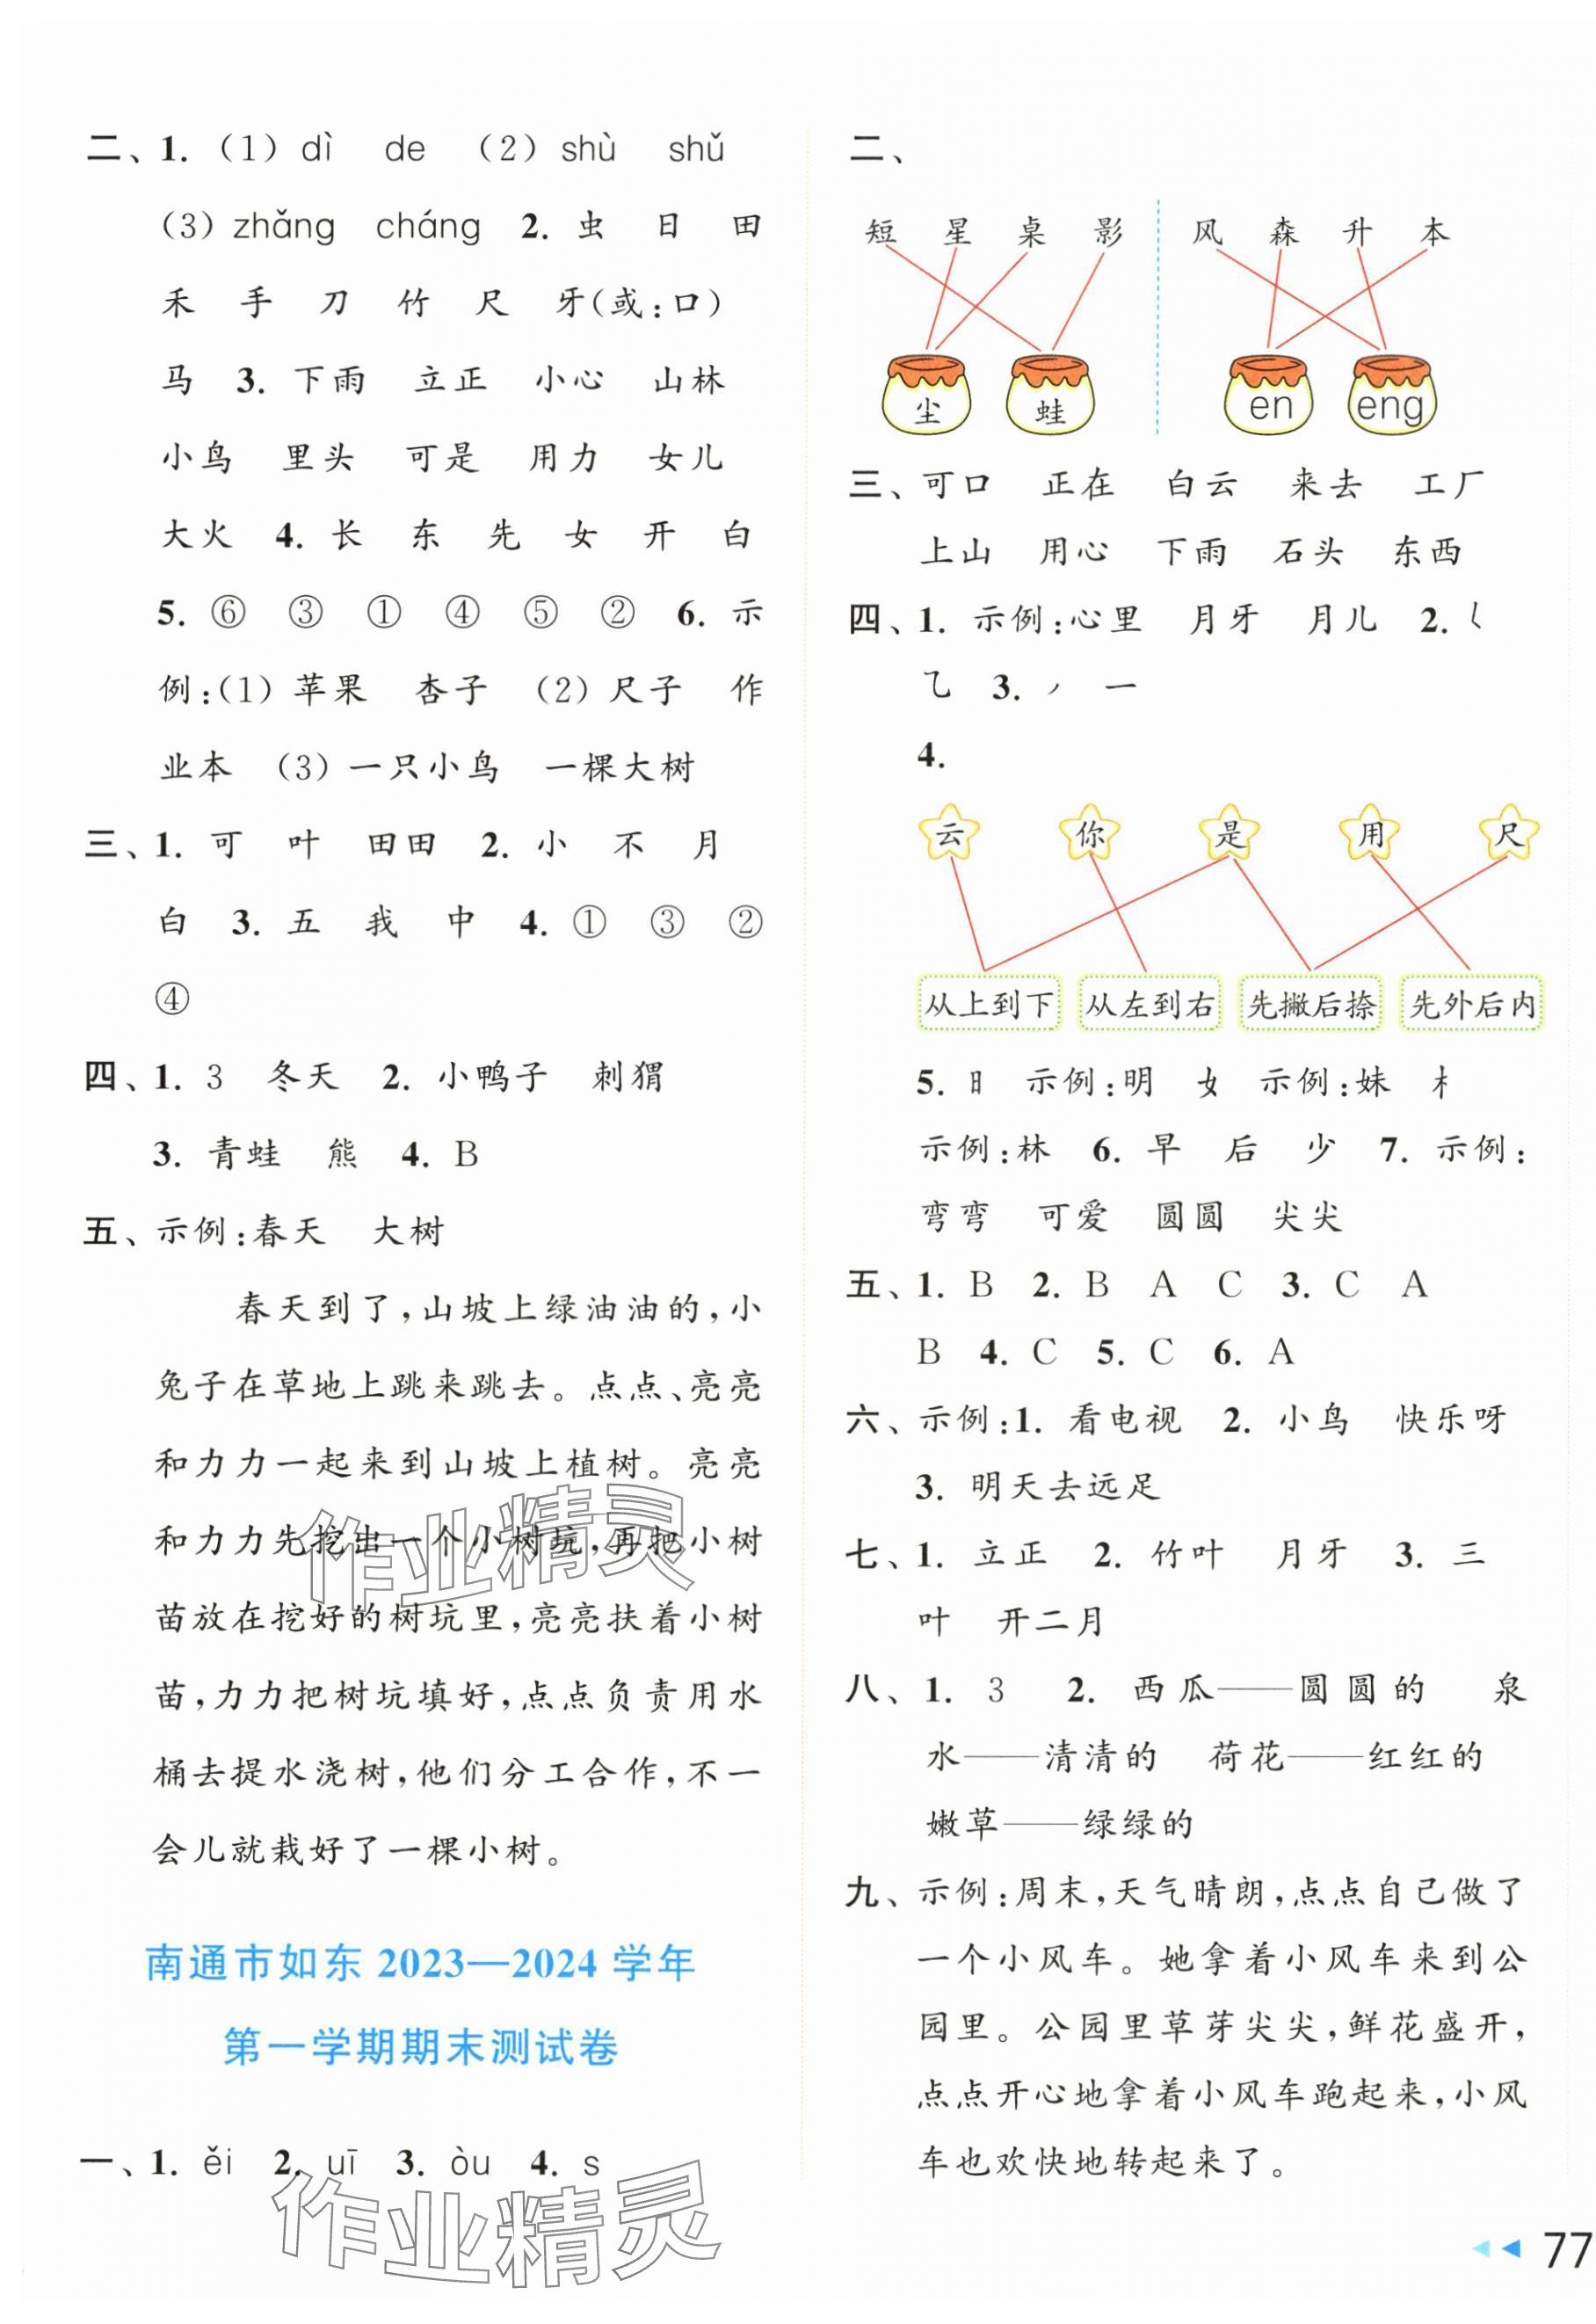 二、1. (1) dì de (2) shù shǔ
(3) zhǎng cháng 2. 虫 日 田
禾 手 刀 竹 尺 牙(或:口)
马 3. 下雨 立正 小心 山林
小鸟 里头 可是 用力 女儿
大火 4. 长 东 先 女 开 白
5. ⑥ ③ ① ④ ⑤ ② 6. 示
例:(1) 苹果 杏子 (2) 尺子 作
业本 (3) 一只小鸟 一棵大树
三、1. 可 叶 田田 2. 小 不 月
白 3. 五 我 中 4. ① ③ ②
④
四、1. 3 冬天 2. 小鸭子 刺猬
3. 青蛙 熊 4. B
五、示例:春天 大树
春天到了,山坡上绿油油的,小
兔子在草地上跳来跳去。点点、亮亮
和力力一起来到山坡上植树。亮亮
和力力先挖出一个小树坑,再把小树
苗放在挖好的树坑里,亮亮扶着小树
苗,力力把树坑填好,点点负责用水
桶去提水浇树,他们分工合作,不一
会儿就栽好了一棵小树。
南通市如东 2023—2024 学年
第一学期期末测试卷
一、1. ěi 2. uī 3. òu 4. s
二、
短 星 桌 影 风 森 升 本
尘 蛙 en eng
三、可口 正在 白云 来去 工厂
上山 用心 下雨 石头 东西
四、1. 示例:心里 月牙 月儿 2. ㇙
乁 3. ㇒ 一
4.
云 你 是 用 尺
从上到下 从左到右 先撇后捺 先外后内
5. 日 示例:明 女 示例:妹 木
示例:林 6. 早 后 少 7. 示例:
弯弯 可爱 圆圆 尖尖
五、1. B 2. B A C 3. C A
B 4. C 5. C 6. A
六、示例:1. 看电视 2. 小鸟 快乐呀
3. 明天去远足
七、1. 立正 2. 竹叶 月牙 3. 三
叶 开二月
八、1. 3 2. 西瓜——圆圆的 泉
水——清清的 荷花——红红的
嫩草——绿绿的
九、示例:周末,天气晴朗,点点自己做了
一个小风车。她拿着小风车来到公
园里。公园里草芽尖尖,鲜花盛开,
点点开心地拿着小风车跑起来,小风
车也欢快地转起来了。
77
作业精灵
作业精灵